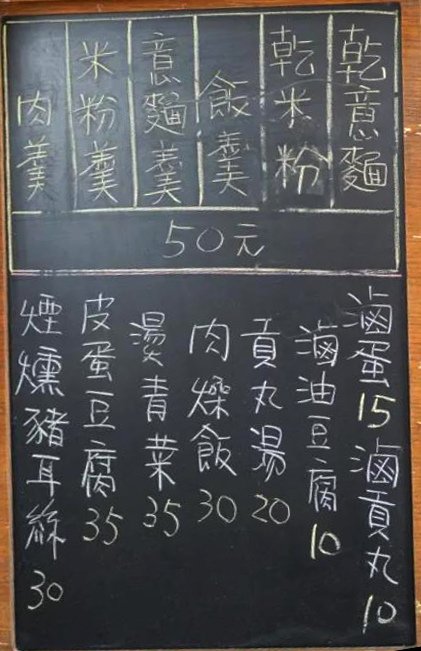 乾意麵
乾米粉
飯羹
意麵羹
米粉羹
肉羹
50元
滷蛋15 滷貢丸10
滷油豆腐10
貢丸湯20
肉燥飯30
燙青菜35
皮蛋豆腐35
煙燻豬耳絲30